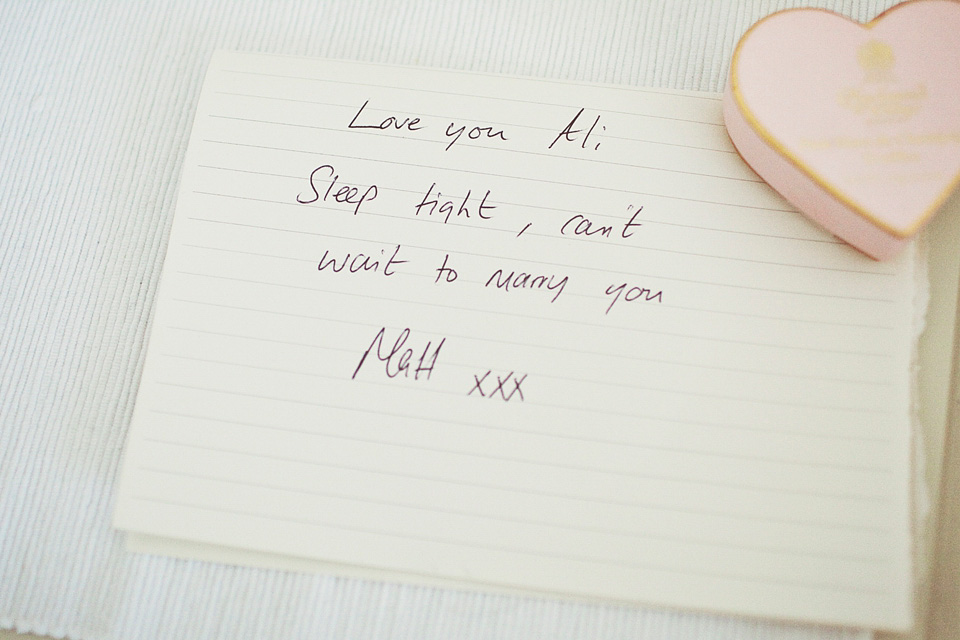 Love you Ali
Sleep tight, can't
wait to marry you
Matt xxx